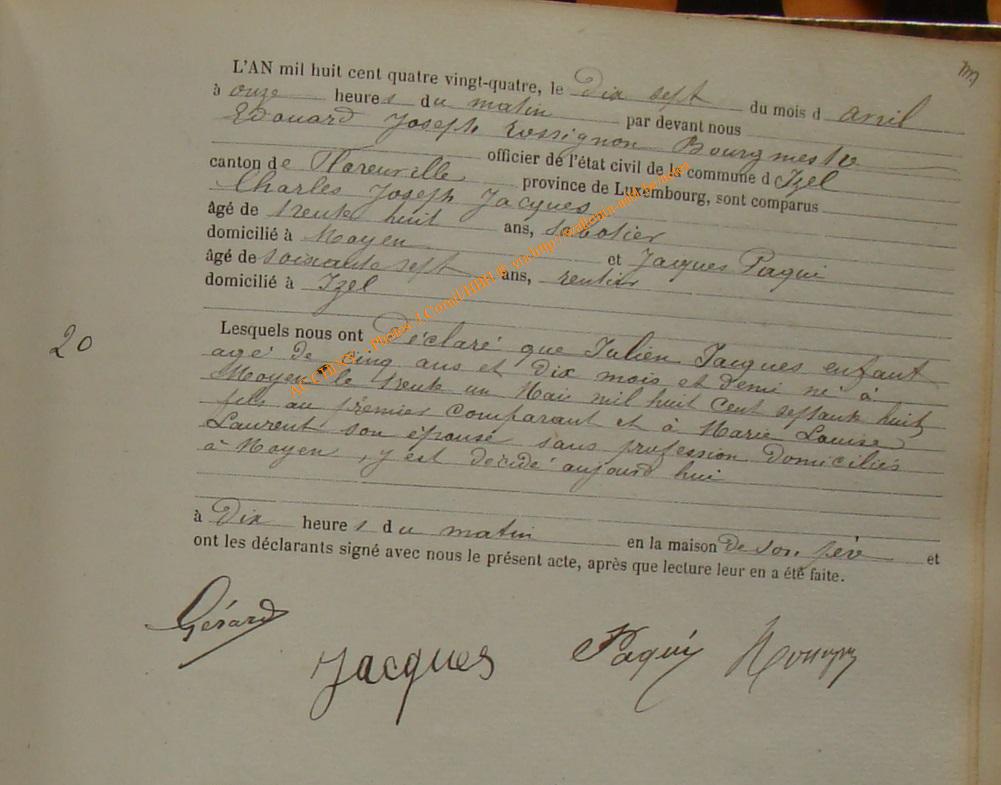 L'AN mil huit cent quatre vingt-quatre, le Dix sept du mois d avril
à onze heures du matin par devant nous
Edouard Joseph Rossignon Bourgmestre
officier de l'état civil de la commune d Izel
canton de Florenville province de Luxembourg, sont comparus
Charles Joseph Jacques
âgé de trente huit ans, sabotier
domicilié à Moyen et Jacques Paqui
âgé de soixante sept ans, rentier
domicilié à Izel
20
Lesquels nous ont Déclaré que Julien Jacques enfant
agé de cinq ans et Dix mois et demi né à
Moyen le trente un Mai mil huit cent septante huit
fils au premier comparant et à Marie Louise
Laurent son épouse sans profession Domiciliés
à Moyen, y est décédé aujourd hui
à Dix heures du matin en la maison De son père et
ont les déclarants signé avec nous le présent acte, après que lecture leur en a été faite.
Gérard
Jacques Paqui